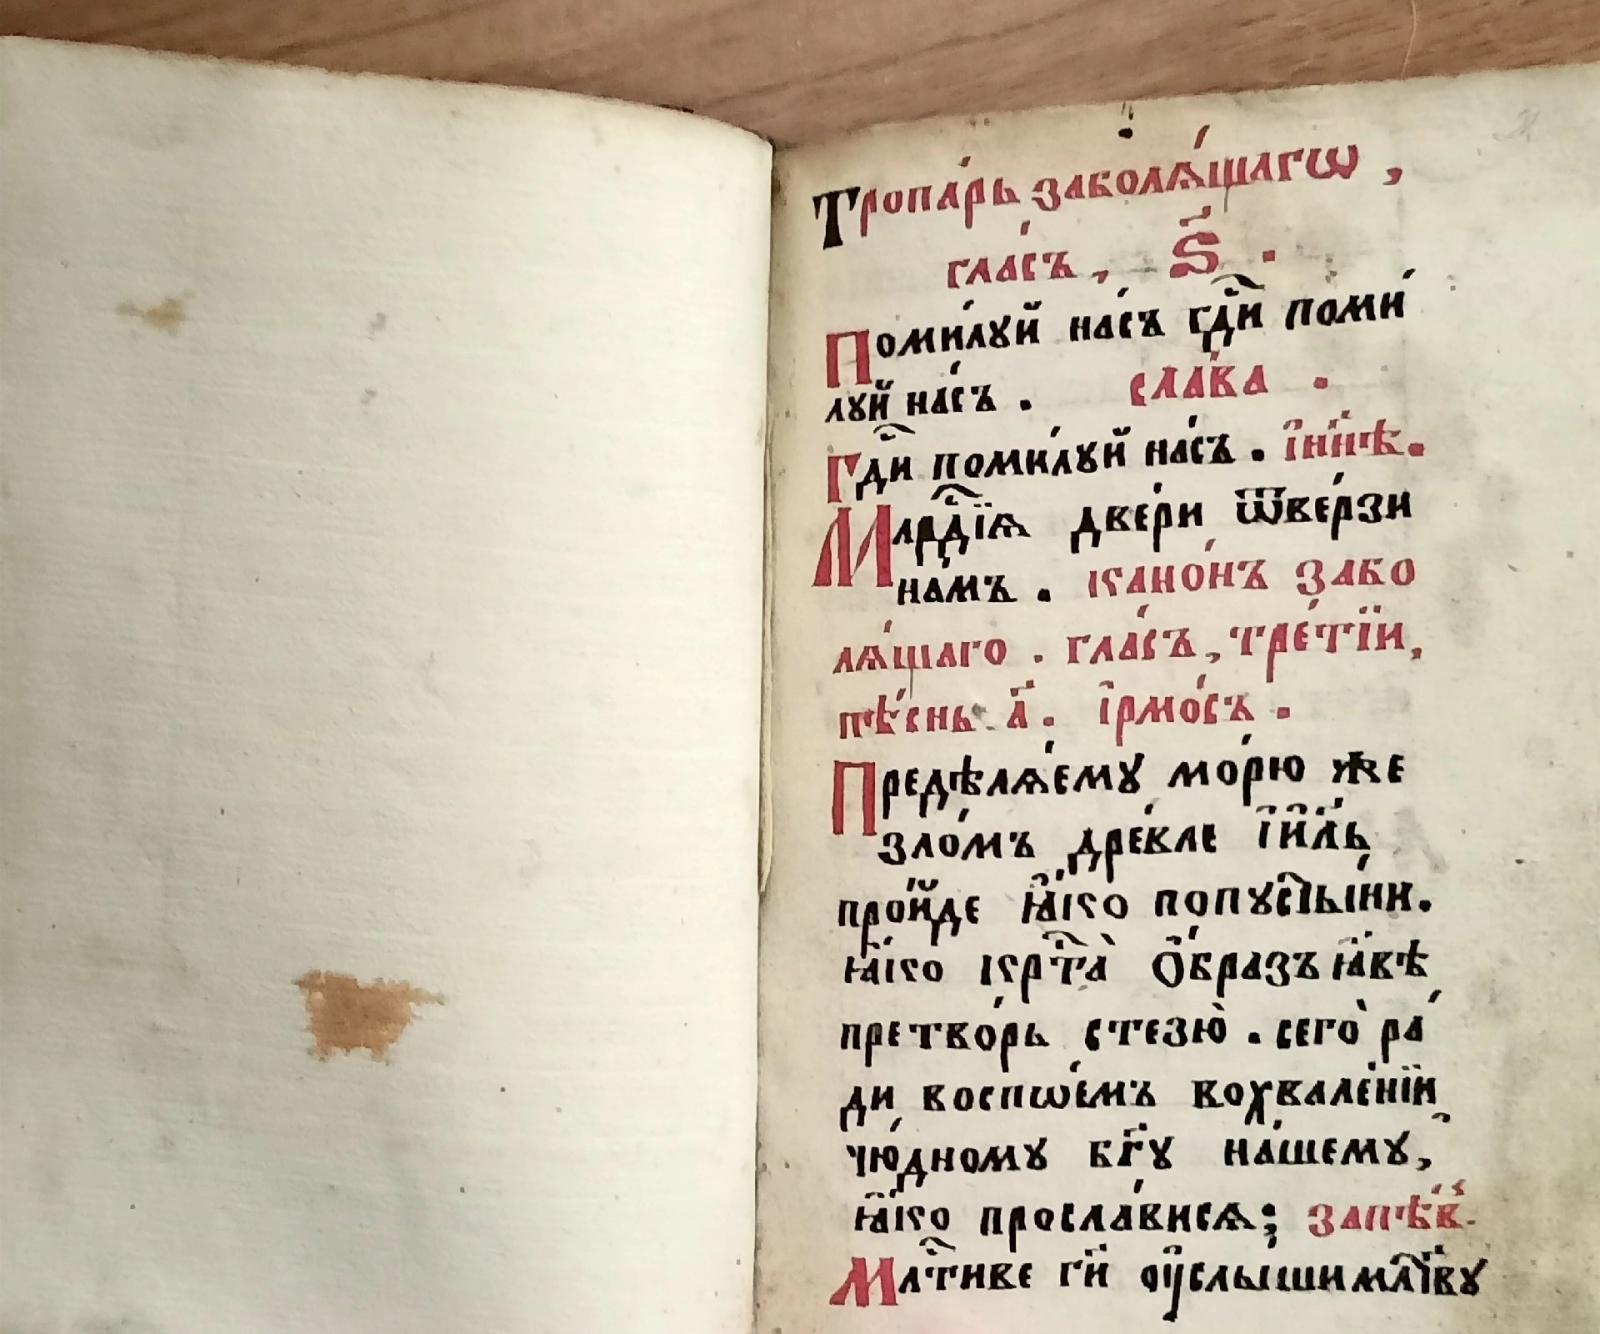 Тропа́рь заболѧ́щагѡ ,
гла́съ , ѕ҃ .
Поми́лꙋй на́съ гдⷭ҇и поми́
лꙋй на́съ . сла́ва .
Гдⷭ҇и поми́лꙋй на́съ . і҆ нн҃ѣ .
Млрⷣїѧ две́ри ѿве́рзи
на́мъ . кано́нъ забо
лѧ́щаго . гла́съ , тре́тїи ,
пѣ́снь а҃ . і҆рмо́съ .
Предѣлѧ́емꙋ мо́рю же
зло́мъ дре́вле і҆и҃ль
про́йде ꙗ҆́ко попꙋсты́ни .
ꙗ҆́ко крⷭ҇та̀ ѻ҆́бразъ ꙗ҆́вѣ
претво́рь стезю̀ . сего̀ ра́
ди воспѡе́мъ вохвале́нїи
чю́дномꙋ бг҃ꙋ на́шемꙋ ,
ꙗ҆́ко просла́висѧ ; запѣ́в
Млⷭ҇тиве гⷭ҇и ᲂу҆слы́ши млтвꙋ